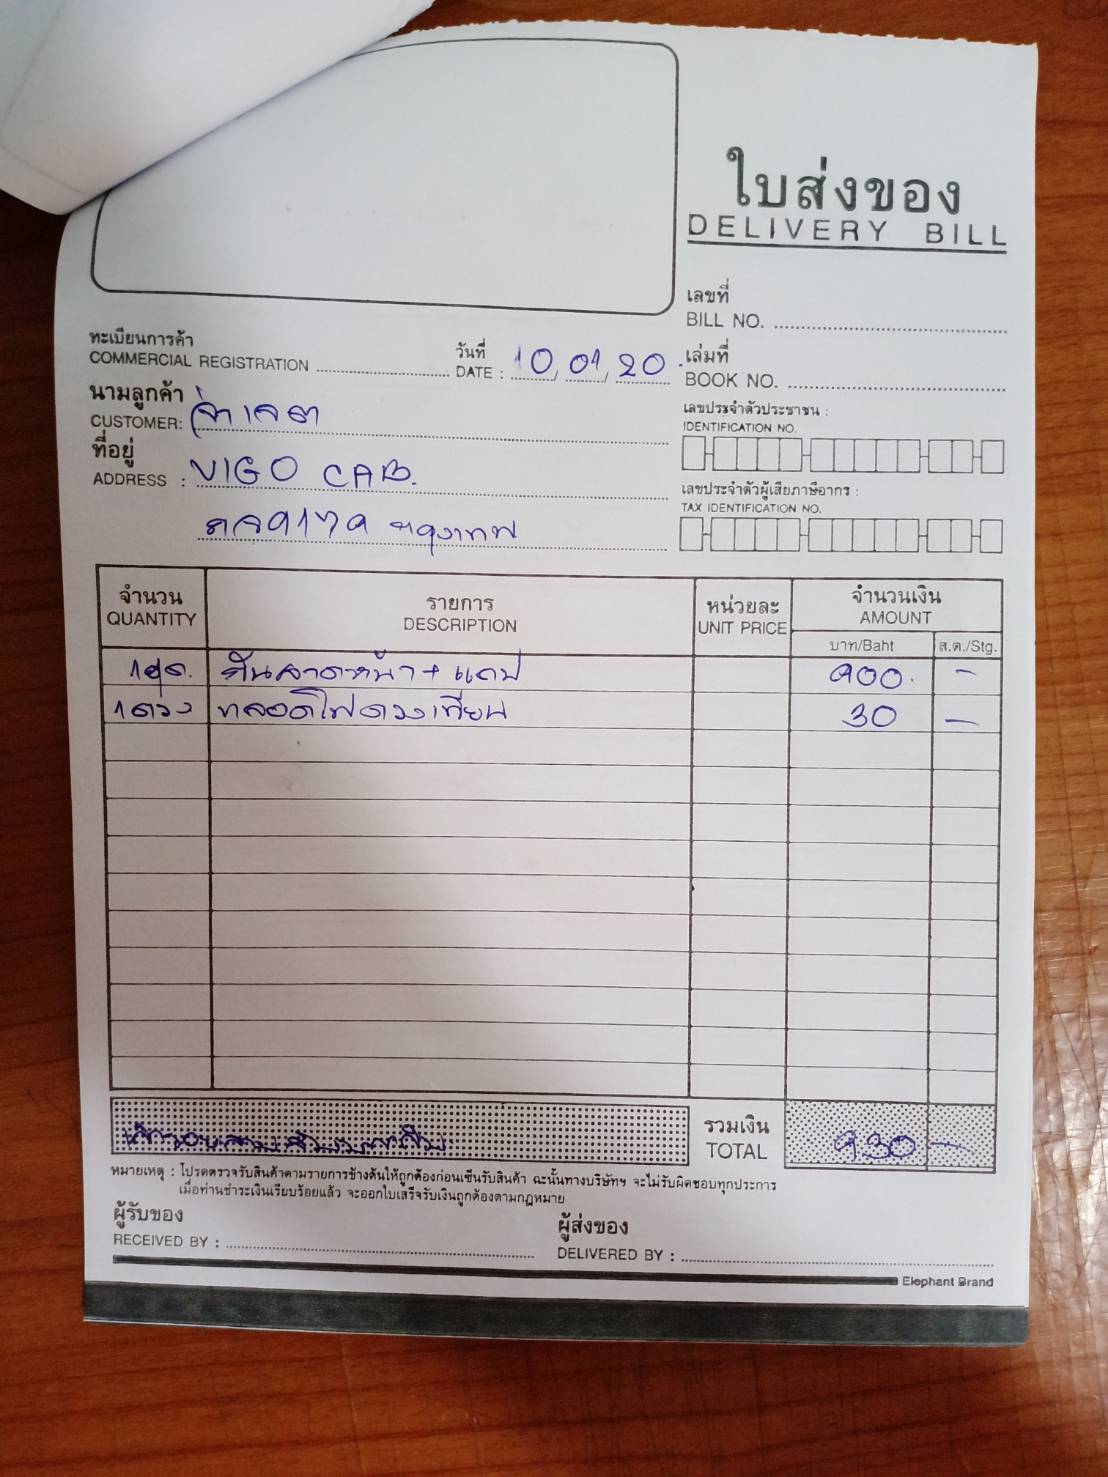 ใบส่งของ
DELIVERY BILL
เลขที่
BILL NO.
ทะเบียนการค้า
COMMERCIAL REGISTRATION
วันที่
DATE : 10, 01, 20
เล่มที่
BOOK NO.
นามลูกค้า
CUSTOMER: จ่าเจตา
ที่อยู่
ADDRESS : VIGO CAB.
กรุงเทพ
เลขประจำตัวประชาชน :
IDENTIFICATION NO.
เลขประจำตัวผู้เสียภาษีอากร :
TAX IDENTIFICATION NO.
จำนวน รายการ หน่วยละ จำนวนเงิน
QUANTITY DESCRIPTION UNIT PRICE AMOUNT
บาท/Baht ส.ต./Stg.
1ชุด. คันลากหน้า + แถบ 900. -
1ดวง หลอดไฟดวงเทียน 30 -
เก้าร้อยสามสิบบาทถ้วน
รวมเงิน
TOTAL 930 -
หมายเหตุ : โปรดตรวจรับสินค้าตามรายการข้างต้นให้ถูกต้องก่อนเซ็นรับสินค้า ฉะนั้นทางบริษัทฯ จะไม่รับผิดชอบทุกประการ
เมื่อท่านชำระเงินเรียบร้อยแล้ว จะออกใบเสร็จรับเงินถูกต้องตามกฎหมาย
ผู้รับของ
RECEIVED BY :
ผู้ส่งของ
DELIVERED BY :
Elephant Brand